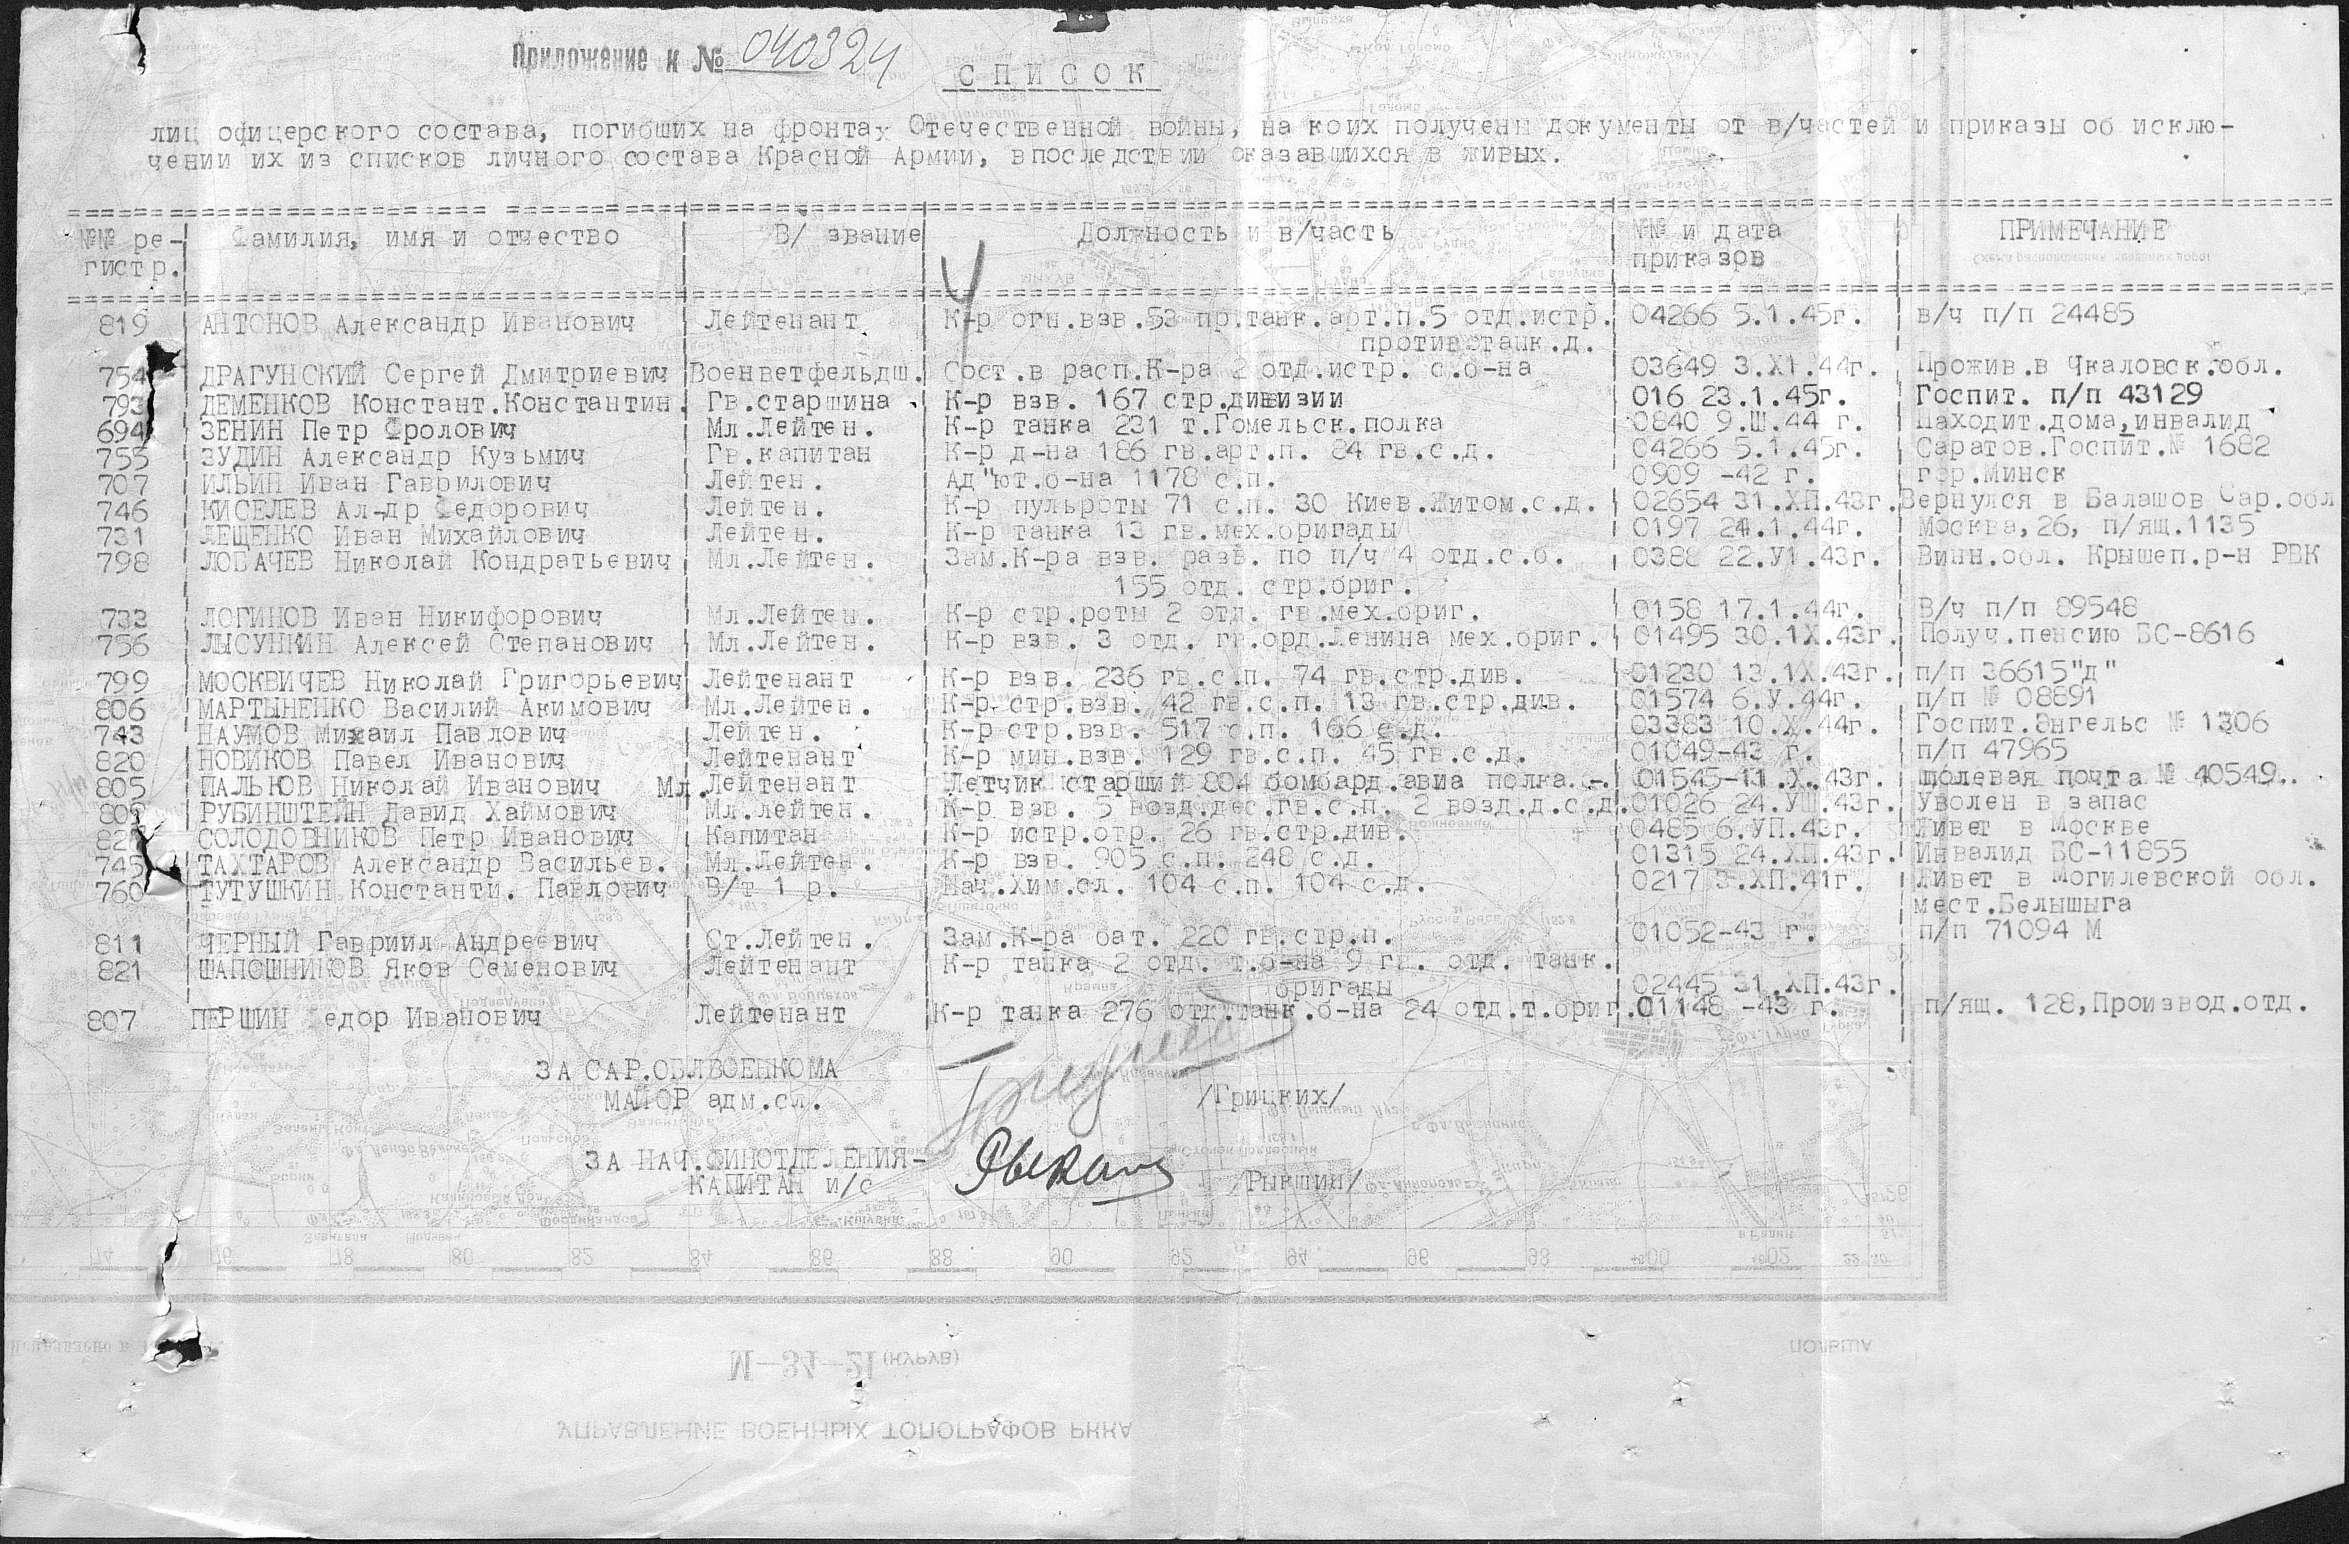 Приложение к № 040324
СПИСОК
лиц офицерского состава, погибших на фронтах Отечественной войны, на коих получены документы от в/частей и приказы об исклю-
чении их из списков личного состава Красной Армии, впоследствии оказавшихся в живых.
№№ ре- Фамилия, имя и отчество В/ звание Должность и в/часть №№ и дата ПРИМЕЧАНИЕ
гистр. приказов
819 АНТОНОВ Александр Иванович Лейтенант К-р огн.взв.53 пр.танк.арт.п.5 отд.истр. 04266 5.1.45г. в/ч п/п 24485
противотанк.д.
754 ДРАГУНСКИЙ Сергей Дмитриевич Военветфельдш. Сост.в расп.К-ра 2 отд.истр. с.б-на 03649 3.Х1.44г. Прожив.в Чкаловск.обл.
793 ДЕМЕНКОВ Констант.Константин. Гв.старшина К-р взв. 167 стр.дивизии 016 23.1.45г. Госпит. п/п 43129
694 ЗЕНИН Петр Фролович Мл.Лейтен. К-р танка 231 т.Гомельск.полка 0840 9.Ш.44 г. Находит.дома,инвалид
755 ЗУДИН Александр Кузьмич Гв.капитан К-р д-на 186 гв.арт.п. 84 гв.с.д. 04266 5.1.45г. Саратов.Госпит.№ 1682
707 ИЛЬИН Иван Гаврилович Лейтен. Ад"ют.б-на 1178 с.п. 0909 -42 г. гор.Минск
746 КИСЕЛЕВ Ал-др Федорович Лейтен. К-р пульроты 71 с.п. 30 Киев.Житом.с.д. 02654 31.ХП.43г. Вернулся в Балашов Сар.обл
731 ЛЕЩЕНКО Иван Михайлович Лейтен. К-р танка 13 гв.мех.бригады 0197 24.1.44г. Москва,26, п/ящ.1135
798 ЛОБАЧЕВ Николай Кондратьевич Мл.Лейтен. Зам.К-ра взв. разв. по п/ч 4 отд.с.б. 0388 22.У1.43г. Винн.обл. Крышеп.р-н РВК
155 отд. стр.бриг.
733 ЛОГИНОВ Иван Никифорович Мл.Лейтен. К-р стр.роты 2 отд. гв.мех.бриг. 0158 17.1.44г. В/ч п/п 89548
756 ЛЫСУНКИН Алексей Степанович Мл.Лейтен. К-р взв. 3 отд. гв.орд.Ленина мех.бриг. 01495 30.1Х.43г. Получ.пенсию БС-8616
799 МОСКВИЧЕВ Николай Григорьевич Лейтенант К-р взв. 236 гв.с.п. 74 гв.стр.див. 01230 13.1Х.43г. п/п 36615"д"
806 МАРТЫНЕНКО Василий Акимович Мл.Лейтен. К-р стр.взв. 42 гв.с.п. 13 гв.стр.див. 01574 6.У.44г. п/п № 08891
743 НАУМОВ Михаил Павлович Лейтен. К-р стр.взв. 517 с.п. 166 с.д. 03383 10.Х.44г. Госпит.Энгельс № 1306
820 НОВИКОВ Павел Иванович Лейтенант К-р мин.взв. 129 гв.с.п. 45 гв.с.д. 01049-43 г. п/п 47965
805 ПАЛЬКОВ Николай Иванович Мл.Лейтенант Летчик старший 804 бомбард.авиа полка.-. 01545-11.Х.43г. полевая почта № 40549..
РУБИНШТЕЙН Давид Хаймович Мл.лейтен. К-р взв. 5 возд.дес.гв.с.п. 2 возд.д.с.д. 01026 24.УШ.43г. Уволен в запас
СОЛОДОВНИКОВ Петр Иванович Капитан К-р истр.отр. 26 гв.стр.див. 0485 6.УП.43г. Живет в Москве
745 ТАХТАРОВ Александр Васильев. Мл.Лейтен. К-р взв. 905 с.п. 248 с.д. 01315 24.ХП.43г. Инвалид БС-11855
760 ТУТУШКИН Константи. Павлович В/т 1 р. Нач.Хим.сл. 104 с.п. 104 с.д. 0217 3.ХП.41г. Живет в Могилевской обл.
мест.Белышыга
811 ЧЕРНЫЙ Гавриил Андреевич Ст.Лейтен. Зам.К-ра бат. 220 гв.стр.п. 01052-43 г. п/п 71094 М
821 ШАПОШНИКОВ Яков Семенович Лейтенант К-р танка 2 отд. т.б-на 9 гв. отд. танк.
бригады 02445 31.ХП.43г.
807 ПЕРШИН едор Иванович Лейтенант К-р танка 276 отд.танк.б-на 24 отд.т.бриг. 01148 -43 г. п/ящ. 128,Производ.отд.
ЗА САР.ОБЛВОЕНКОМА
МАЙОР адм.сл. /Грицких/
ЗА НАЧ.ФИНОТДЕЛЕНИЯ-
КАПИТАН и/с /Рывшин/
74 76 78 80 82 84 86 88 90 92 94 96 98
М-34-21 (КУРУВ) ПОЛЬША
УПРАВЛЕНИЕ ВОЕННЫХ ТОПОГРАФОВ РККА